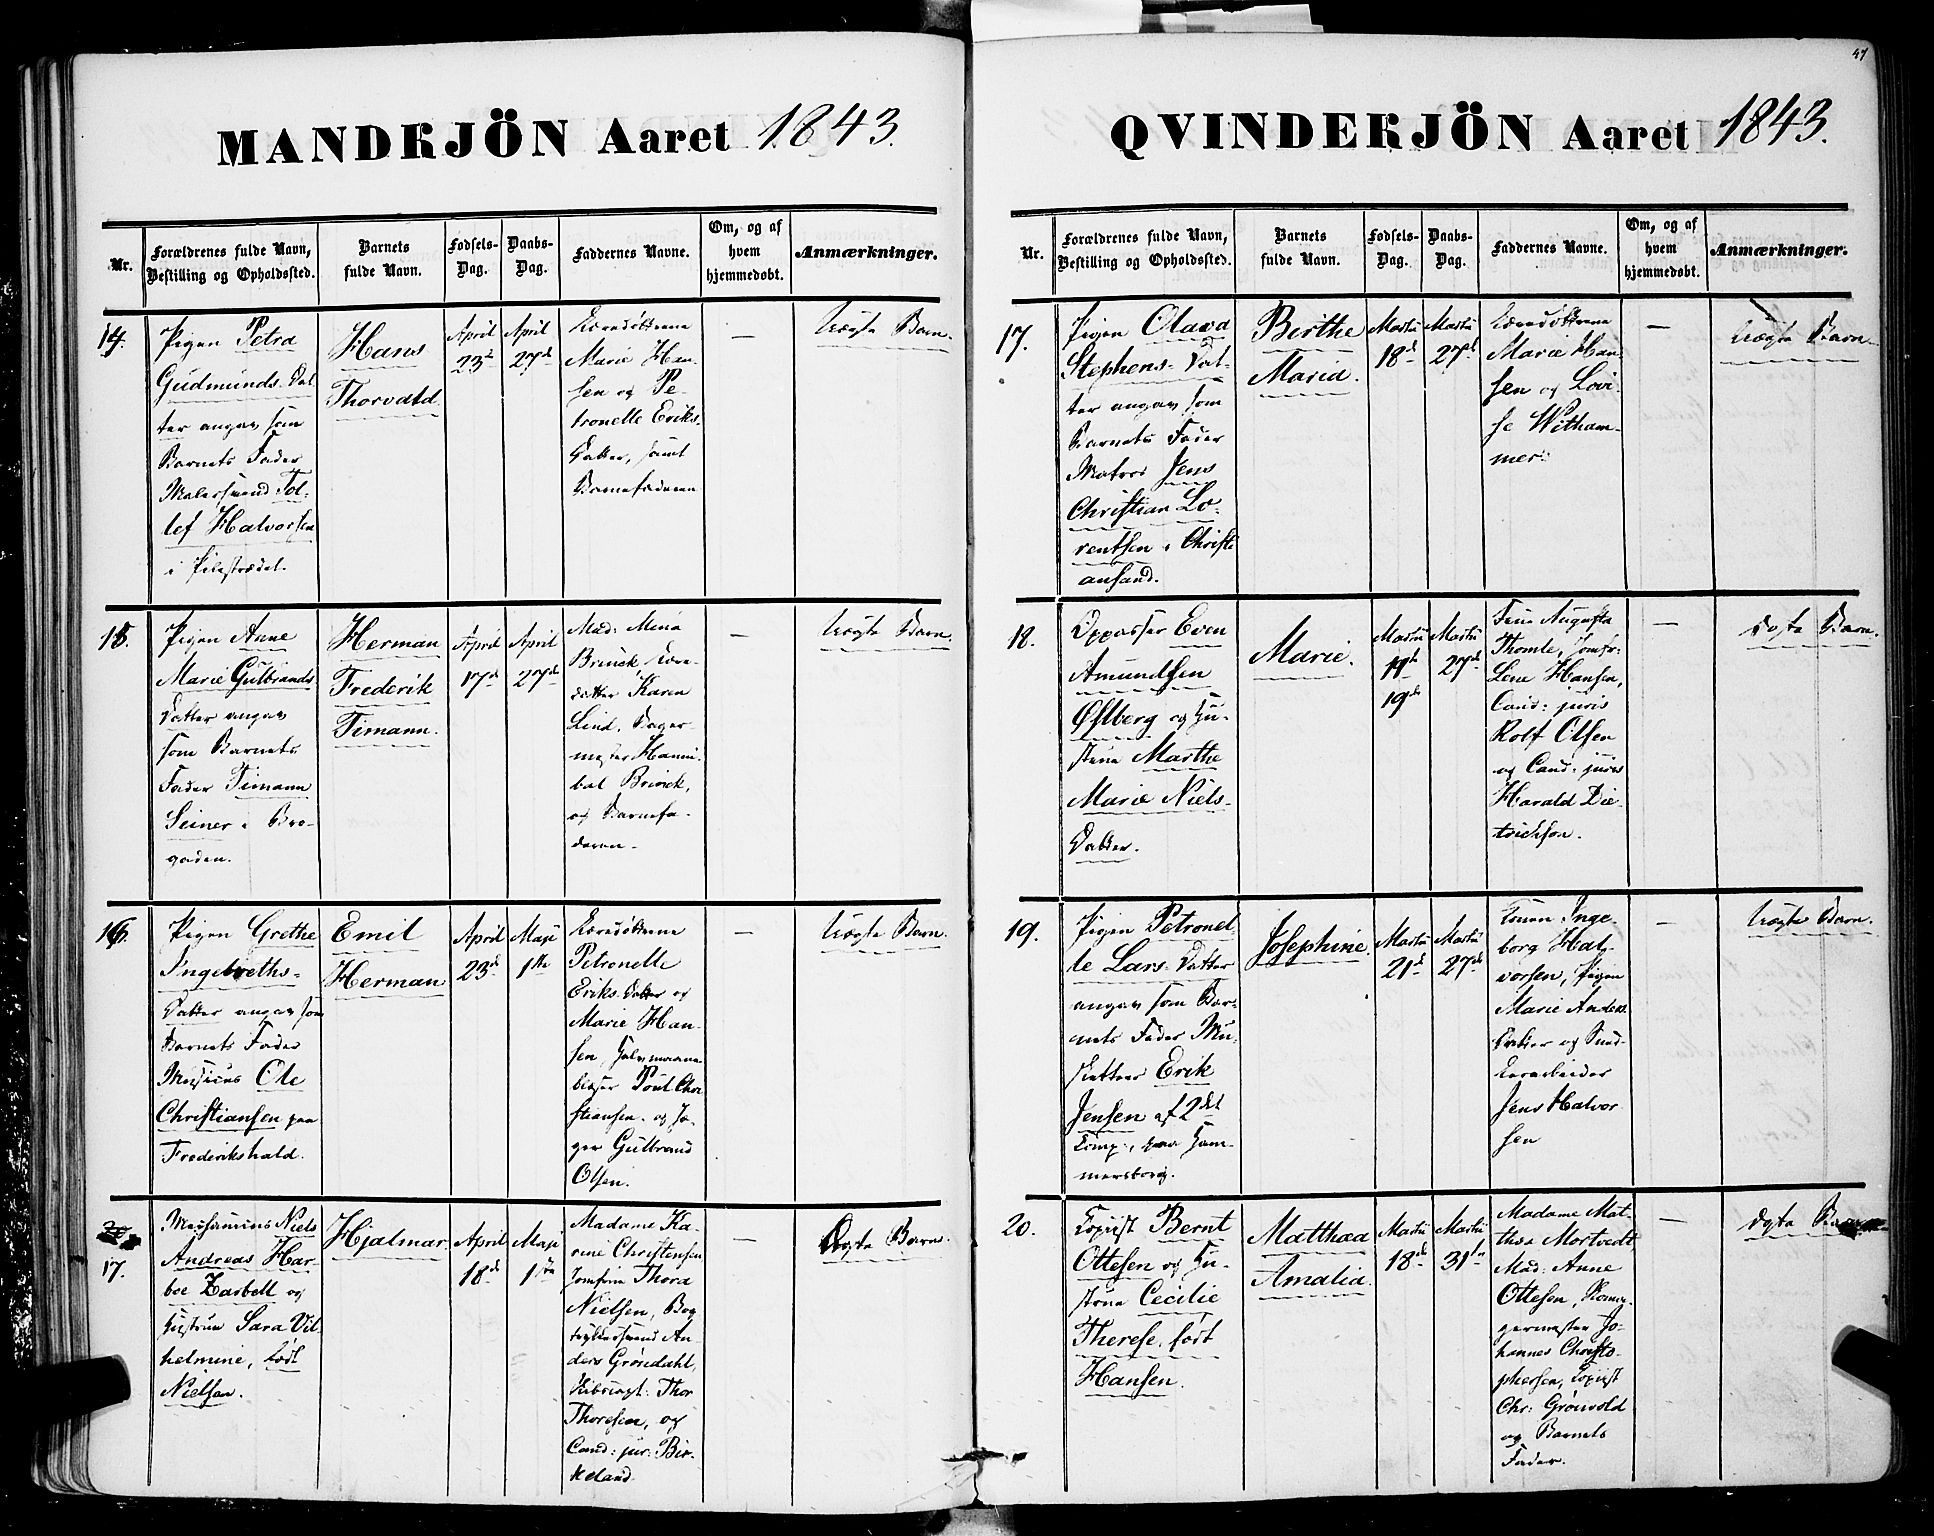 MANDKJÖN Aaret 1843.
Nr.
Forældrenes fulde Navn,
Bestilling og Opholdssted.
Barnets
fulde Navn.
Fødsels-
Dag.
Daabs-
Dag.
Faddernes Navne.
Om, og af
hvem
hjemmedøbt.
Anmærkninger.
14.
Pigen Petra
Gudmunds-Dat-
ter angav som
Barnets Fader
Malersvend Tol-
lef Halvorsen
i Pilestrædet.
Hans
Thorvald
April
23d
April
27d
Marie Han-
sen og Pe-
tronelle Eriks-
Datter, samt
Barnefaderen
—
Uægte Barn.
15.
Pigen Anne
Marie Gulbrands
Datter angav
som Barnets
Fader Timann
Seiner i Bro-
gaden.
Herman
Frederik
Timann.
April
17d
April
27d
Mad: Mina
Brinck,
datter Karen
Lind, Bager-
mester Hanni-
bal Brinck,
og Barnefa-
deren.
—
Uægte Barn.
16.
Pigen Grethe
Ingebreths-
Datter angav som
Barnets Fader
Musicus Ole
Christiansen paa
Frederikshald.
Emil
Herman
April
23d
Maji
1ste
Petronelle
Eriks-Datter og
Marie Han-
sen,
blæser Poul Chri-
stiansen og Jæ-
ger Gulbrand
Olsen.
—
Uægte Barn.
17.
Niels
Andreas Har-
boe Zarbell og
Hustrue Sara Vil-
helmine, født
Nielsen.
Hjalmar.
April
18d
Maji
1ste
Madame Ka-
rine Christensen
Jomfrue Thora
Nielsen, Bog-
trykkersvend An-
ders Gröndahl,
Thor
Thoresen, og
Cand: jur: Bir-
keland.
—
Ægte Barn.
47
QVINDEKJÖN Aaret 1843.
Nr.
Forældrenes fulde Navn,
Bestilling og Opholdssted.
Barnets
fulde Navn.
Fødsels-
Dag.
Daabs-
Dag.
Faddernes Navne.
Om, og af
hvem
hjemmedøbt.
Anmærkninger.
17.
Pigen Olava
Stephens-Dat-
ter angav som
Barnets Fader
Matros Jens
Christian Lo-
rentsen i Christi-
ansand.
Birthe
Maria.
Martii
18d
Martii
27d
Marie Han-
sen og Lovi-
se Witham-
mer.
—
Uægte Barn.
18.
Oppasser Even
Amundsen
Østberg og Hu-
strue Marthe
Marie Niels-
Datter.
Marie.
Martii
19d
Martii
27d
Augusta
Thomle, Jomfr:
Lene Hansen,
Cand: juris
Rolf Olsen
og Cand: juris
Harald Die-
trichson.
—
Ægte Barn.
19.
Pigen Petronel-
le Lars-Datter
angav som Bar-
nets Fader Mu-
sketteer Erik
Jensen af 2det
Comp., paa Ham-
mersborg.
Josephine.
Martii
21d
Martii
27d
Konen Inge-
borg Hal-
vorsen, Pigen
Marie Anders-
Datter og
Jens Halvor-
sen
—
Uægte Barn.
20.
Copist Bernt
Ottesen og Hu-
strue Cecilie
Therese, født
Hansen.
Matthea
Amalia.
Martii
18d
Martii
31te
Madame Mat-
thea Mortvedt
Mad: Anne
Ottesen,
germester Jo-
hannes Christo-
phersen, Copist
Chr: Grönvold
og Barnets
Fader.
—
Ægte Barn